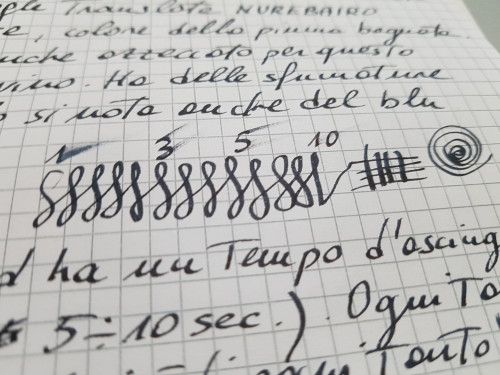 Translate NUREBAIRO
colore dello piuma bagnata.
anche azzeccato per questo
Ha delle sfumature
si nota anche del blu
1 3 5 10
ha un Tempo d'asciug
5÷10 sec.). Ogni To
Tanto